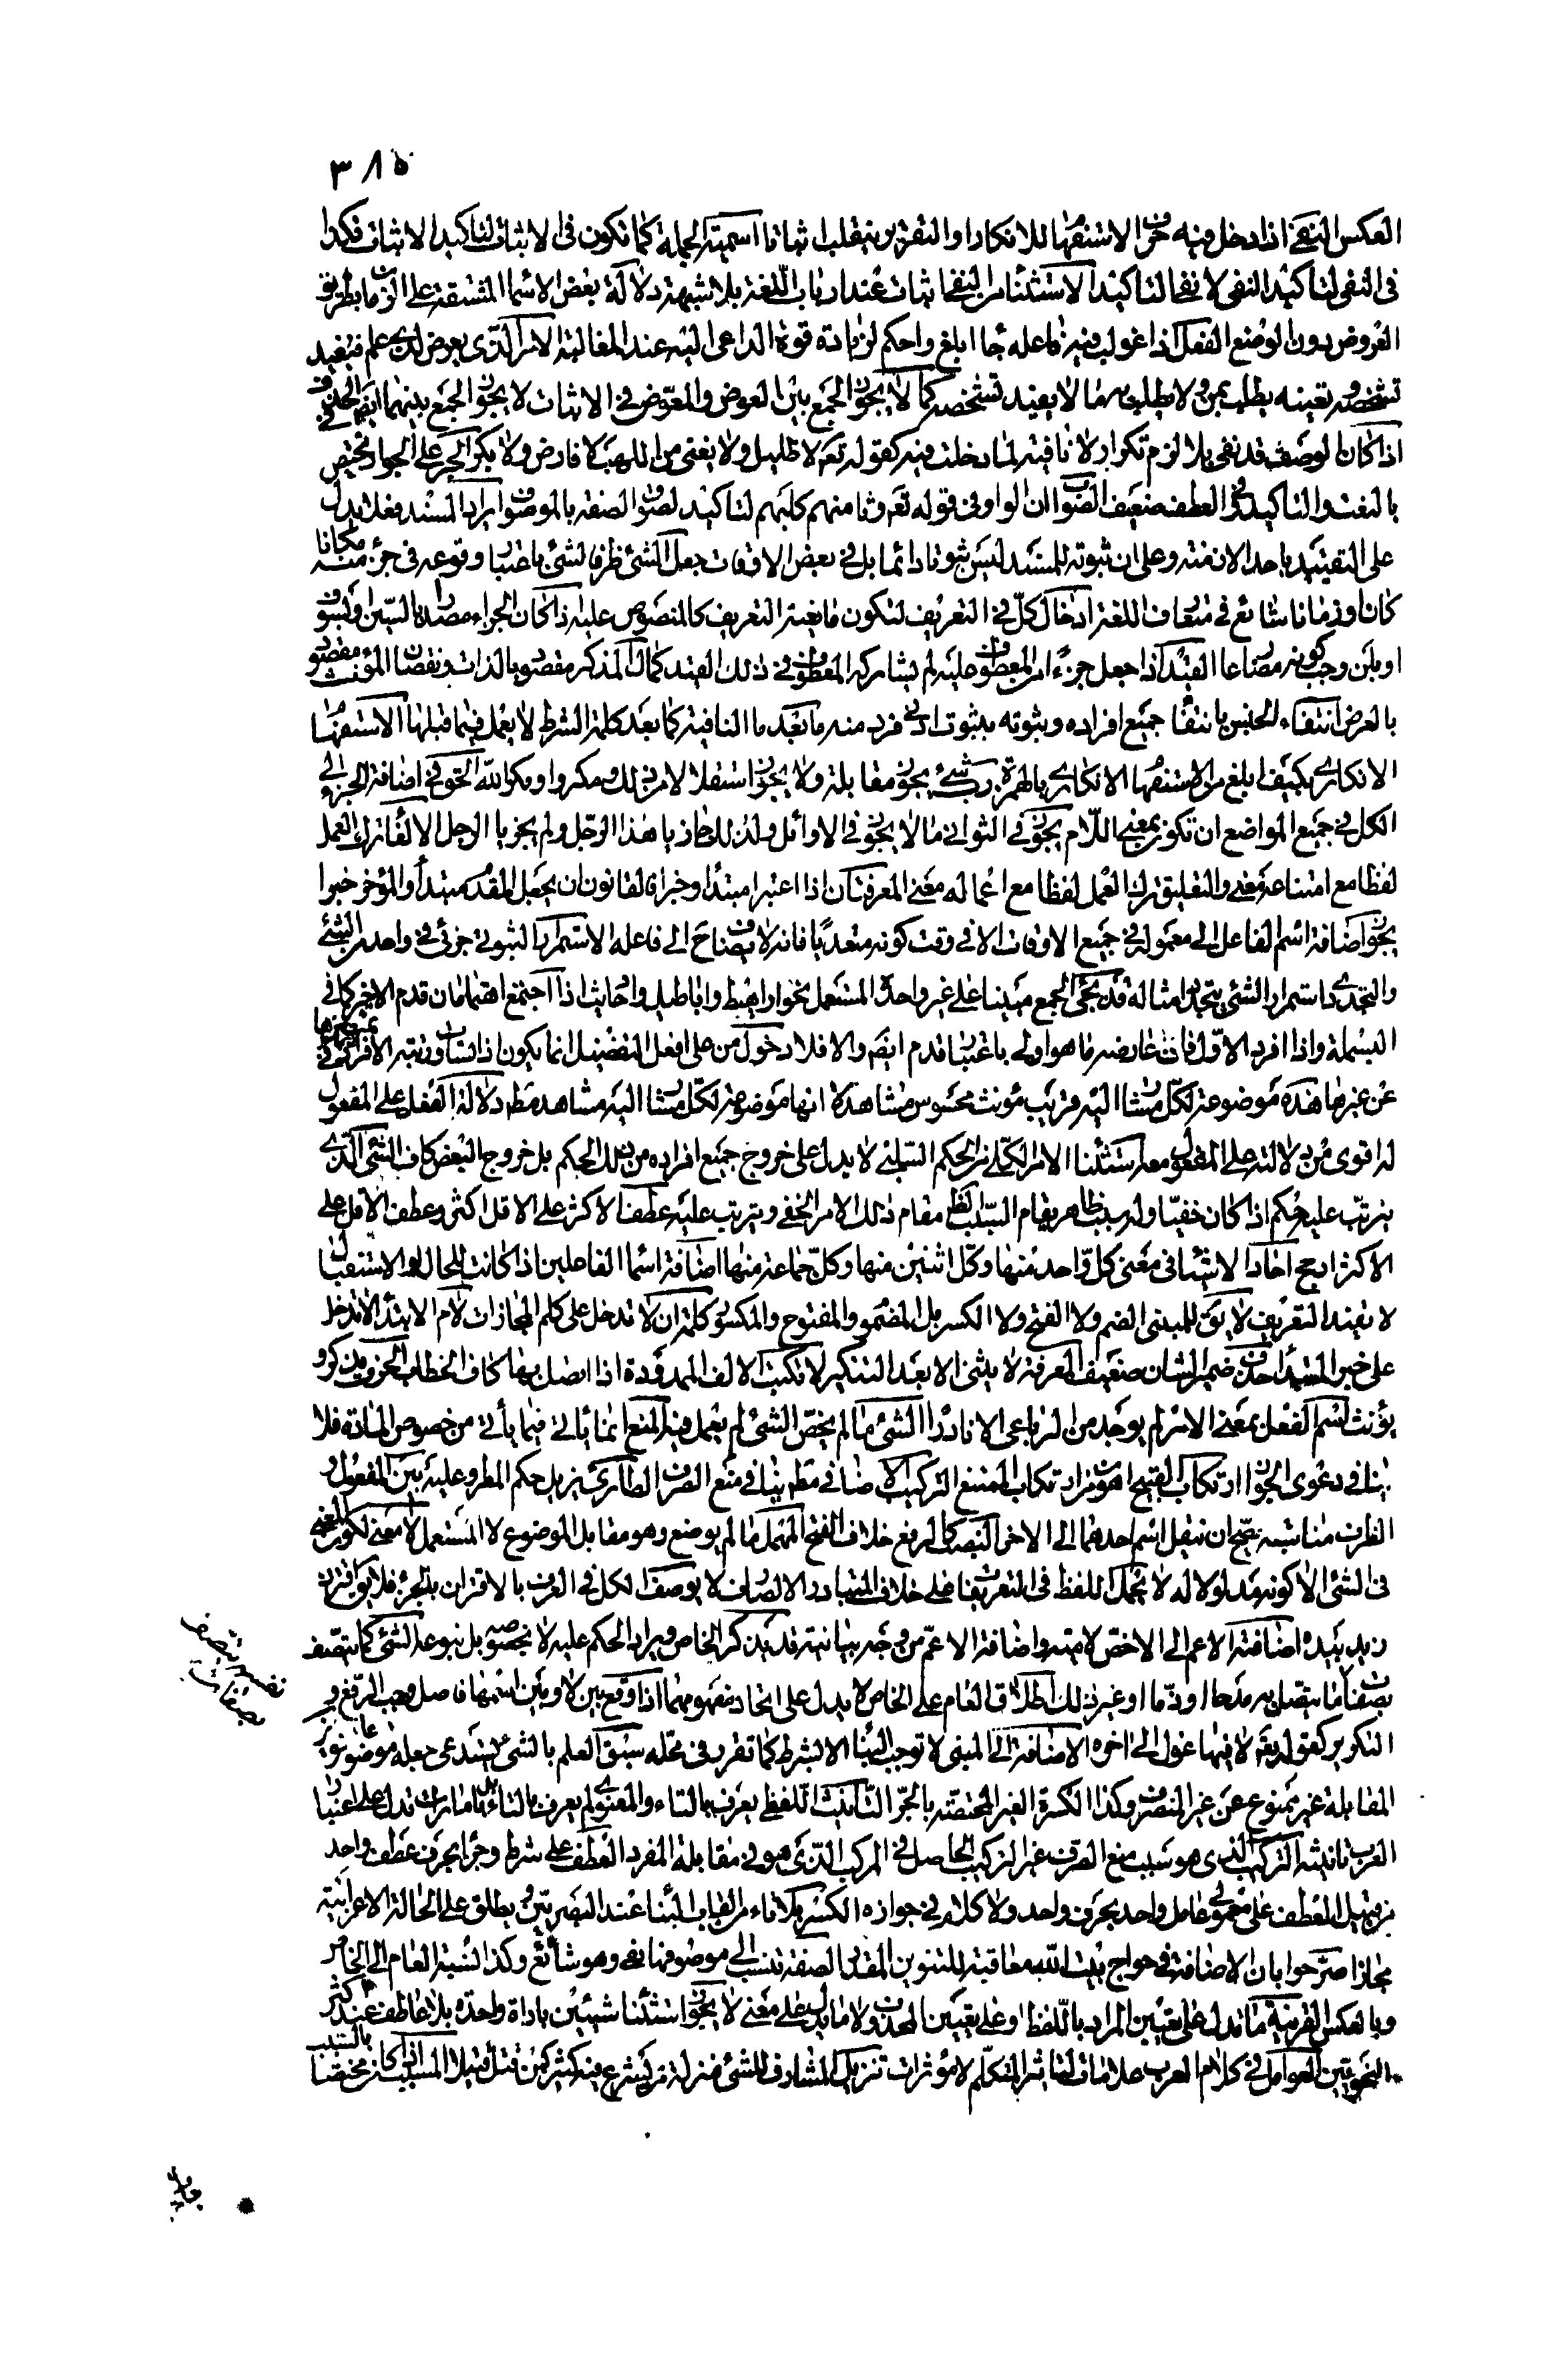 ٣٨٥
العكس النفي اذا دخل فيه حرف الاستفهام للانكار او التقرير ينقلب اثباتا اسمية الجملة كما تكون فى الاثبات لتاكيد الاثبات فكذا
فى النفى لتاكيد النفى لا نفى التاكيد الاستثناء من النفى اثبات عند ارباب اللغة بلا شبهة دلالة بعض الاسما المشتقة على الزمان بطريق
العروض دون الوضع الفعل اذا غولب فيه فاعله جاء ابلغ واحكم لزيادة قوة الداعى اليه عند المغالبة الامر الذى يعرض لذى علم فيفيد
تشخصه وتعينه يطلب بمن ولا يطلب بمن ما لا يفيد تشخصه كما لا يجوز الجمع بين العوض والمعوض فى الاثبات لا يجوز الجمع بينهما ايضا فى الحذف
اذا كان الوصف قد نفى بلا لزم تكرار لا نافية لما دخلت فيه كقوله تع لا ظليل ولا يغنى من اللهب لا فارض ولا بكر الجر على الجوار يختص
بالنعت والتاكيد وفى العطف ضعيف الصواب ان الواو فى قوله تع وثامنهم كلبهم لتاكيد لصوق الصفة بالموصوف ايراد المسند فعلا يدل
على التقييد باحد الازمنة وعلى ان ثبوته للمسند ليس ثبوتا دائما بل فى بعض الاوقات جعل الشئ ظرفا لشئ باعتبار وقوعه فى جزء منه مكانا
كان او زمانا شائع فى متعارف اللغة ادخال كل فى التعريف لتكون مانعية التعريف كالمنصوص عليه اذا كان الجزاء مصدرا بالسين او سوف
او بلن وجب كونه مضارعا القيد اذا جعل جزءا من المعطوف عليه لم يشاركه المعطوف فى ذلك القيد كمال المذكر مقصود بالذات ونقصان المؤنث مقصود
بالعرض انتفاء الجنس بانتفاء جميع افراده وثبوته بثبوت ادنى فرد منه ما بعد ما النافية كما بعد كلمة الشرط لا يعمل فيما قبلها الاستفهام
الانكارى بكيف ابلغ من الاستفهام الانكارى بالهمزة رب شئ يجوز مقابلة ولا يجوز استقلالا من ذلك ومكروا ومكر الله الحق فى اضافة الجزء الى
الكل فى جميع المواضع ان تكون بمعنى اللام يجوز فى الثوانى ما لا يجوز فى الاوائل ولذلك جاز يا هذا الرجل ولم يجز يا الرجل الالغاء ترك العمل
لفظا مع امتناعه معنى والتعليق ترك العمل لفظا مع اعماله معنى المعرفتان اذا اعتبرا مبتدا وخبرا فالقانون ان يجعل المقدم مبتدأ والمؤخر خبرا
يجوز اضافة اسم الفاعل الى معموله فى جميع الاوقات الا فى وقت كونه متعديا فانه لا يضاف ح الى فاعله الاستمرار الثبوتى جزئى فى واحد من الشئ
والتجددى استمرار الشئ بتجدد امثاله قد يجئ الجمع مبنيا على غير واحده المستعمل نحو اراهط واباطيل واحاديث اذا اجتمع اهتمامان قدم الاخير كما فى
البسملة واذا افرد الاول فان عارضه ما هو اولى باعتبار قدم ايضا والا فلا دخول من على افعل التفضيل انما يكون اذا تساوت رتبة الافراد فى تميزها
عن غيرها هذه موضوعة لكل مشار اليه قريب مؤنث محسوس مشاهدة لا انها موضوعة لكل مشار اليه مشاهد مط دلالة الفعل على المفعول
له اقوى من دلالته على المفعول معه استثناء الامر الكلى من الحكم السلبى لا يدل على خروج جميع افراده من ذلك الحكم بل خروج البعض كاف الشئ الذى
يترتب عليه حكم اذا كان خفيا وله سبب ظاهر يقام السبب الظاهر مقام ذلك الامر الخفى ويترتب عليه عطف الاكثر على الاقل اكثر وعطف الاقل على
الاكثر ارجح احاد الاشياء فى معنى كل واحد منها وكل اثنين منها وكل جماعة منها اضافة اسما الفاعلين اذا كانت للحال او الاستقبال
لا تفيد التعريف لا يق للمبنى الضم ولا الفتح ولا الكسر بل المضموم والمفتوح والمكسور كلمة ان لا تدخل على كلم المجازات لام الابتداء لا تدخل
على خبر المبتدأ حذف ضمير الشان ضعيف المعرفة لا يثنى الا بعد التنكير لا تكتب الالف الممدودة اذا اتصل بها كاف الخطاب الحروف يذكر و
يؤنث اسم الفعل بمعنى الامر لم يوجد من الرباعى الا نادرا الشئ ما لم يختص الشئ لم يعمل فيه المنع انما ياتى فيما يأتى من خصوص المادة فلا
ينافى دعوى الجواز ارتكاب القبيح اهون من ارتكاب الممتنع التركيب الاضافى مط ينافى منع الصرف الطارى يزيل حكم المطرو عليه بين المفعول و
الظرف مناسبة يصح ان ينقل اسم احدهما الى الاخر النصب كالرفع خلاف الفتح المهمل ما لم يوضع وهو مقابل الموضوع لا المستعمل لا معنى لكون المعنى
فى الشئ الا كونه مدلولا له لا يحمل اللفظ فى التعريف على خلاف المتبادر الا لصارف لا يوصف الكل فى العرف بالاقتران بالجزء فلا يق اقترن
زيد بيده اضافة الاعم الى الاخص لامية واضافة الاعم من وجه بيانية قد يذكر الخاص ويراد الحكم عليه لا بخصوصه بل بنوعه الشئ كما يتصف
بصفة ما يتصل به مدحا او ذما او غير ذلك اطلاق العام على الخاص لا يدل على اتحاد مفهومهما اذا وقع بين لا وبين اسمها فاصل وجب الرفع و
التكرير كقوله تع لا فيها غول الى اخره الاضافة الى المبنى لا توجب البناء الا بشرط كما تقرر فى محله سبق العلم بالشئ يستدعى جعله موضوعا تنوين
المقابلة غير ممنوع عن غير المنصرف وكذا الكسرة الغير المختصة بالجر التأنيث اللفظى يعرف بالتاء والمعنوى لم يعرف بالتاء بل بامارات تدل على اعتبار
العرب تانيثه التركيب الذى هو سبب منع الصرف غير التركيب الحاصل فى المركب الذى هو فى مقابلة المفرد العطف على شرط وجزا بحرف عطف واحد
من قبيل العطف على معمولى عامل واحد بحرف واحد ولا كلام فى جوازه الكسر بلا تاء من القاب البناء عند البصريين ويطلق على الحالة الاعرابية
مجازا صرحوا بان الاضافة فى حواج بيت الله معاقبة للتنوين المقدر الصفة تنسب الى موصوفها بفى وهو شائع وكذا نسبة العام الى الخاص
وبالعكس القرينة ما تدل على تعيين المراد باللفظ او على تعيين المحذوف ولا ما يدل على معنى لا يجوز استثناء شيئين باداة واحدة بلا عاطف عند اكثر
النحويين العوامل فى كلام العرب علامات لتاثير المتكلم لا مؤثرات تنزيل المشارف للشئ منزلة من يشرع فيه كثير كمن قتل قتيلا المسبب اذا كان مختصا بالسبب